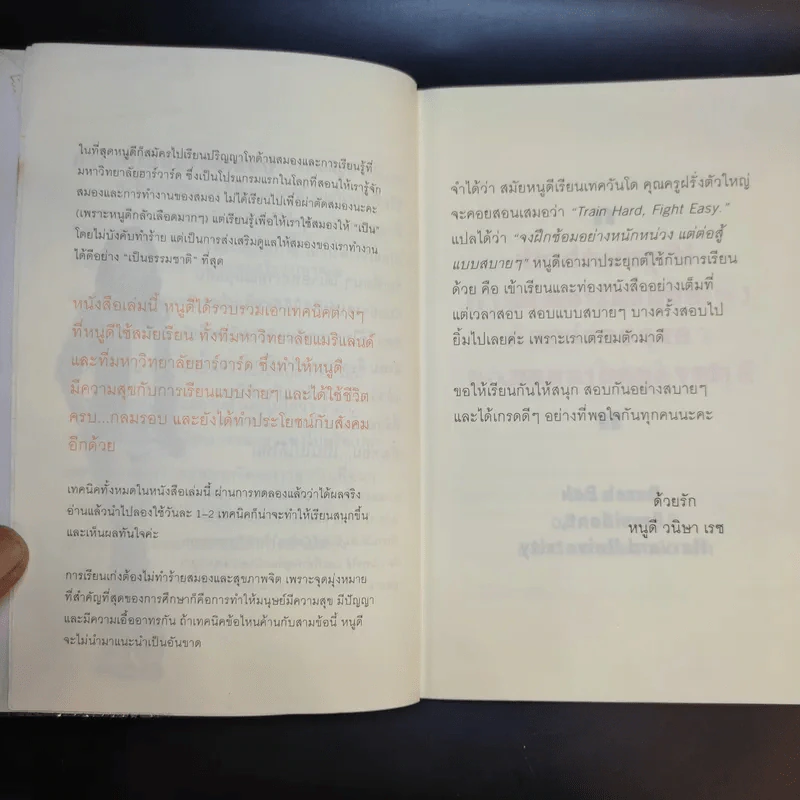 ในที่สุดหนูดีก็สมัครไปเรียนปริญญาโทด้านสมองและการเรียนรู้ที่
มหาวิทยาลัยฮาร์วาร์ด ซึ่งเป็นโปรแกรมแรกในโลกที่สอนให้เรารู้จัก
สมองและการทำงานของสมอง ไม่ได้เรียนไปเพื่อผ่าตัดสมองนะคะ
(เพราะหนูดีกลัวเลือดมากๆ) แต่เรียนรู้เพื่อให้เราใช้สมองให้ “เป็น”
โดยไม่บังคับทำร้าย แต่เป็นการส่งเสริมดูแลให้สมองของเราทำงาน
ได้ดีอย่าง “เป็นธรรมชาติ” ที่สุด
หนังสือเล่มนี้ หนูดีได้รวบรวมเอาเทคนิคต่างๆ
ที่หนูดีใช้สมัยเรียน ทั้งที่มหาวิทยาลัยแมริแลนด์
และที่มหาวิทยาลัยฮาร์วาร์ด ซึ่งทำให้หนูดี
มีความสุขกับการเรียนแบบง่ายๆ และได้ใช้ชีวิต
ครบ...กลมรอบ และยังได้ทำประโยชน์กับสังคม
อีกด้วย
เทคนิคทั้งหมดในหนังสือเล่มนี้ ผ่านการทดลองแล้วว่าได้ผลจริง
อ่านแล้วนำไปลองใช้วันละ 1–2 เทคนิคก็น่าจะทำให้เรียนสนุกขึ้น
และเห็นผลทันใจค่ะ
การเรียนเก่งต้องไม่ทำร้ายสมองและสุขภาพจิต เพราะจุดมุ่งหมาย
ที่สำคัญที่สุดของการศึกษาก็คือการทำให้มนุษย์มีความสุข มีปัญญา
และมีความเอื้ออาทรกัน ถ้าเทคนิคข้อไหนค้านกับสามข้อนี้ หนูดี
จะไม่นำมาแนะนำเป็นอันขาด
จำได้ว่า สมัยหนูดีเรียนเทควันโด คุณครูฝรั่งตัวใหญ่
จะคอยสอนเสมอว่า “Train Hard, Fight Easy.”
แปลได้ว่า “จงฝึกซ้อมอย่างหนักหน่วง แต่ต่อสู้
แบบสบายๆ” หนูดีเอามาประยุกต์ใช้กับการเรียน
ด้วย คือ เข้าเรียนและท่องหนังสืออย่างเต็มที่
แต่เวลาสอบ สอบแบบสบายๆ บางครั้งสอบไป
ยิ้มไปเลยค่ะ เพราะเราเตรียมตัวมาดี
ขอให้เรียนกันให้สนุก สอบกันอย่างสบายๆ
และได้เกรดดีๆ อย่างที่พอใจกันทุกคนนะคะ
ด้วยรัก
หนูดี วนิษา เรซ